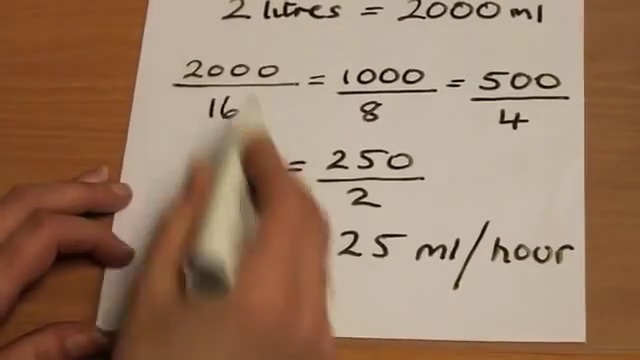 2 litres = 2000 ml
2000/16 = 1000/8 = 500/4
= 250/2
25 ml/hour